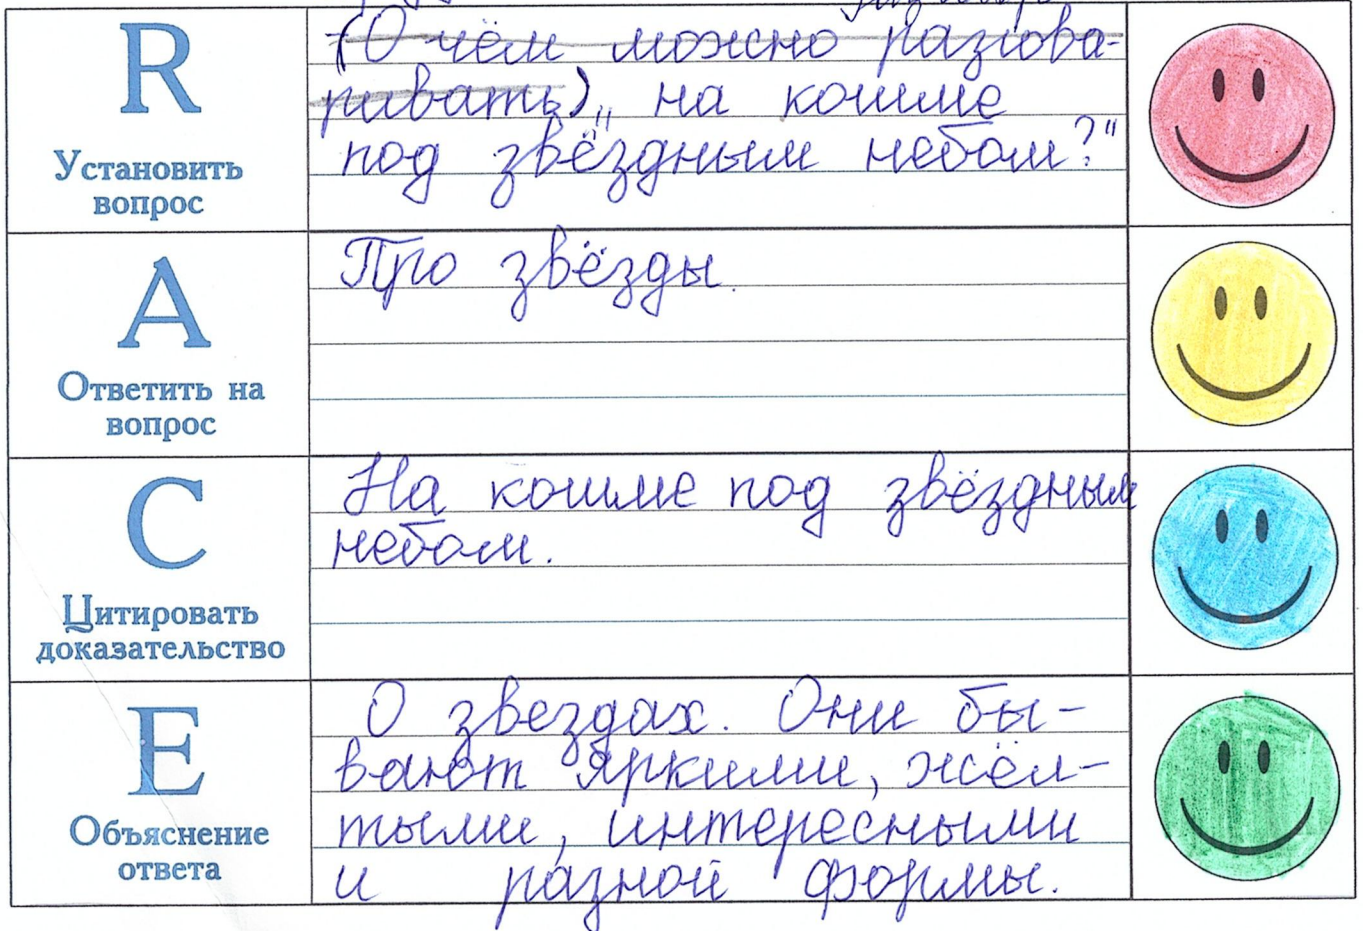 R
Установить
вопрос
(О чём можно разгова-
ривать) „ на кошме
под звёздным небом?"
A
Ответить на
вопрос
Про звёзды.
C
Цитировать
доказательство
На кошме под звёздным
небом.
E
Объяснение
ответа
О звездах. Они бы-
вают яркими, жёл-
тыми, интересными
и разной формы.